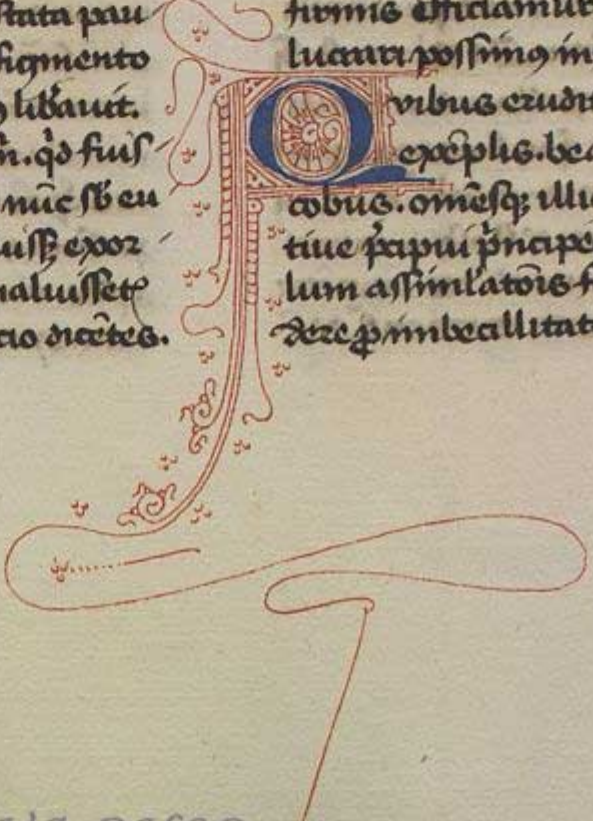 stata pau
figmento
libauit.
qd̄ fuiſ
nūc ſb eu
expor
maluiſſet
cio dicētes.
firmis efficiamur
lucrari poſſimꝰ in
Quibus erudit
exēplis. bea
cobus. omēſqꝫ illi
tiue p̄cipui p̄ncipe
lum aſſimilatōis f
dere ꝓ imbecillitat